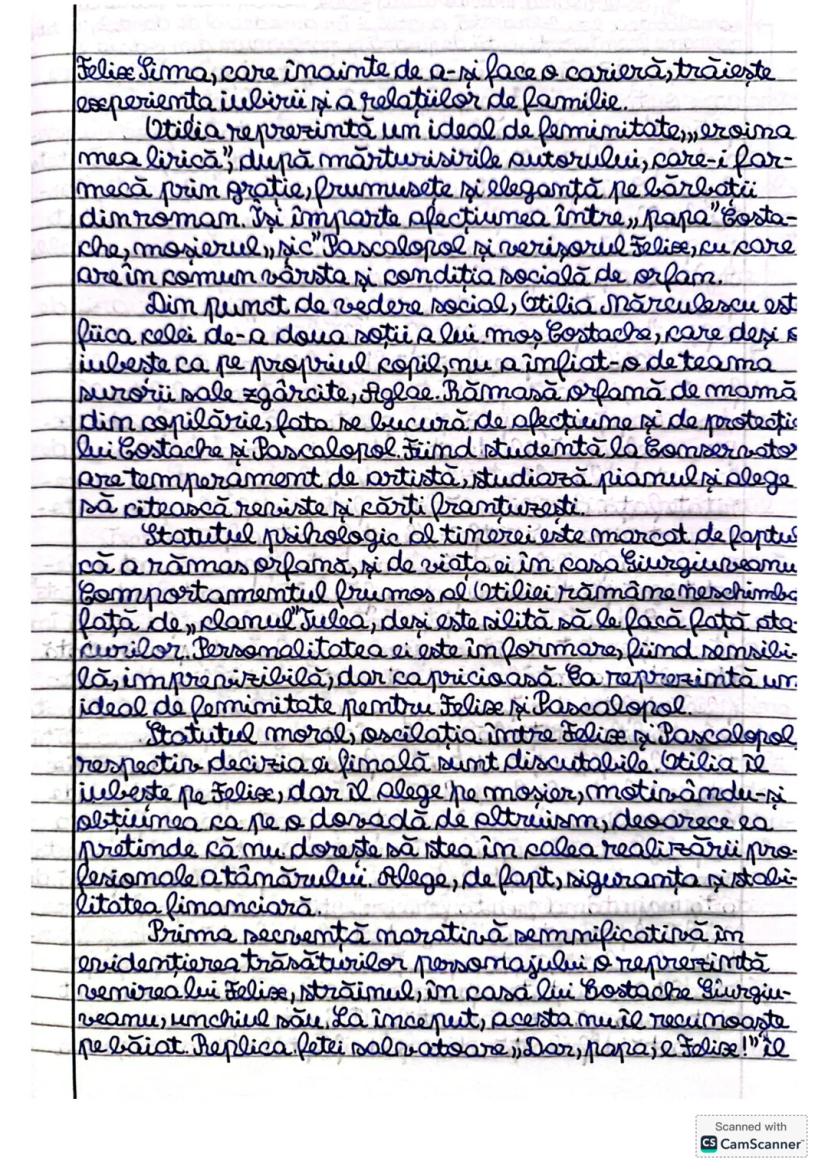 Felix Sima, care înainte de a-și face o carieră, trăiește
experiența iubirii și a relațiilor de familie.
Otilia reprezintă un ideal de feminitate, „eroina
mea lirică”, după mărturisirile autorului, care-i far-
mecă prin grație, frumusețe și eleganță pe bărbații
din roman. Își împarte afecțiunea între „papa” Costa-
che, moșierul „șic” Pascalopol și verișorul Felix, cu care
are în comun vârsta și condiția socială de orfan.
Din punct de vedere social, Otilia Mărculescu est
fiica celei de-a doua soții a lui moș Costache, care deși o
iubește ca pe propriul copil, nu a înfiat-o de teama
surorii sale zgârcite, Aglae. Rămasă orfană de mamă
din copilărie, fata se bucură de afecțiune și de protecție
lui Costache și Pascalopol. Fiind studentă la Conservato
are temperament de artistă, studiază pianul și alege
să citească reviste și cărți franțuzești.
Statutul psihologic al tinerei este marcat de faptul
că a rămas orfană, și de viața ei în casa Giurgiuveanu
Comportamentul frumos al Otiliei rămâne neschimba
față de „clanul” Tulea, deși este silită să le facă față ata-
curilor. Personalitatea ei este în formare, fiind sensibi-
lă, imprevizibilă, dar capricioasă. Ea reprezintă un
ideal de feminitate pentru Felix și Pascalopol.
Statutul moral, oscilația între Felix și Pascalopol
respectiv decizia ei finală sunt discutabile. Otilia îl
iubește pe Felix, dar îl alege pe moșier, motivându-și
obțiunea ca pe o dovadă de altruism, deoarece ea
pretinde că nu dorește să stea în calea realizării pro-
fesionale a tânărului. Alege, de fapt, siguranța și stabi-
litatea financiară.
Prima secvență narativă semnificativă în
evidențierea trăsăturilor personajului o reprezintă
venirea lui Felix, străinul, în casa lui Costache Giurgiu-
veanu, unchiul său. La început, acesta nu îl recunoaște
pe băiat. Replica fetei salvatoare „Dar, papa, e Felix!” îl
Scanned with
CS CamScanner